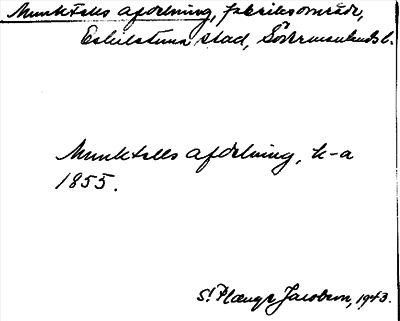 Munktells afdelning, fabriksområde,
Eskilstuna stad, Södermanlands l.
Munktells afdelning, k-a
1855.
S! Plænge Jacobson, 1943.